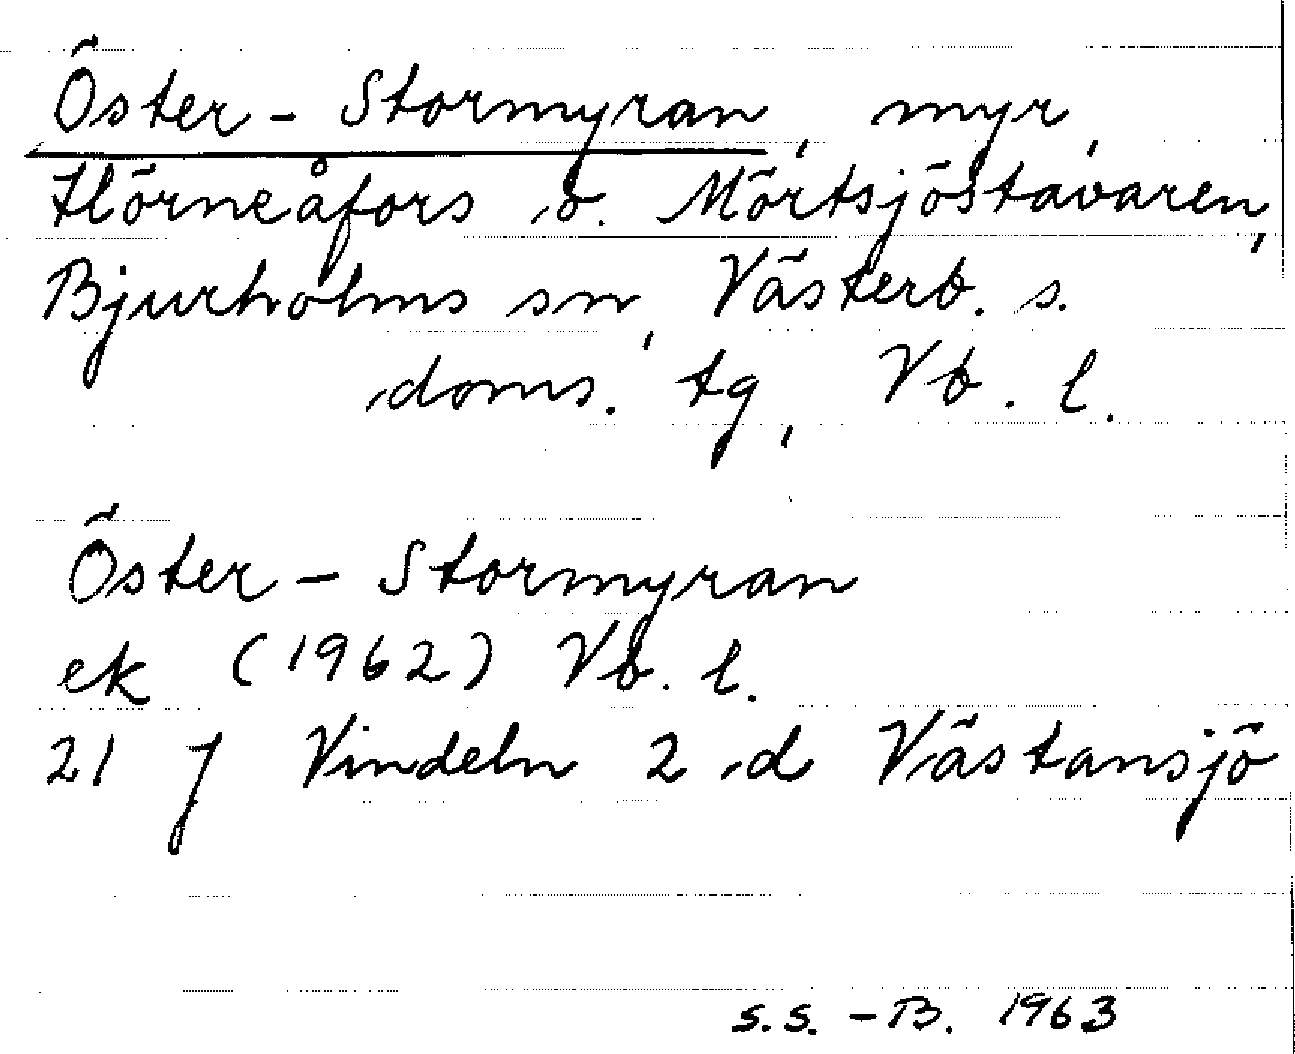 Öster - Stormyran, myr,
Hörneåfors o. Mörtsjöstavaren,
Bjurholms sn, Västerb. s.
doms. tg, Vb. l.
Öster - Stormyran
ek (1962) Vb. l.
21 J Vindeln 2 d Västansjö
s.s. - B. 1963